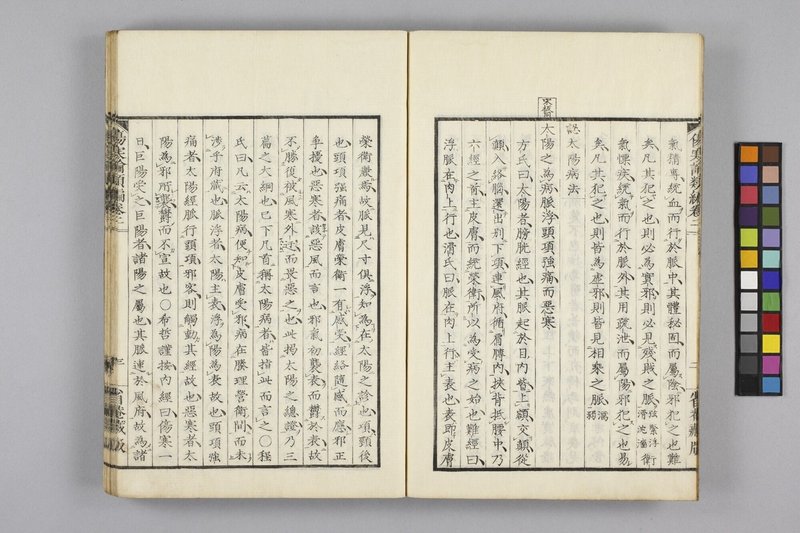 氣猶專統血而行於脈中其體秘固而屬陰邪犯之也難
矣凡其犯之也則必為實邪則必見殘賊之脈弦緊浮滑沈濇
氣慓疾統氣而行於脈外其用疏泄而屬陽邪犯之也易
矣凡其犯之也則皆為虛邪則皆見相乘之脈
太陽病法
太陽之為病脈浮頭項強痛而惡寒
方氏曰太陽者膀胱經也其脈起於目內眥上額交顛從
顛入絡腦還出別下項連風府循肩膊內挾脊抵腰中乃
六經之首主皮膚而統榮衛所以為受病之始也難經曰
浮脈在肉上行也滑氏曰脈在肉上行主表也表即皮膚
榮衛麗焉故脈見尺寸俱浮知為在太陽之診也項頸後
也頭項強痛者皮膚榮衛一有感受經絡隨感而應邪正
爭擾也惡寒者該惡風而言也邪氣初襲表而鬱於表故
不勝復被風寒外迕而畏惡之也此揭太陽之總證乃三
篇之大綱也已下凡首稱太陽病者皆指此而言之〇程
氏曰凡云太陽病便知皮膚受邪病在腠理營衛間而未
涉乎府藏也脈浮者太陽主表浮為陽為表故也頭項強
痛者太陽經脈行頭項邪客則觸動其經故也惡寒者太
陽為邪所襲鬱而不宣故也〇希哲謹按內經曰傷寒一
日巨陽受之巨陽者諸陽之屬也其脈連於風府故為諸
傷寒論類編卷二